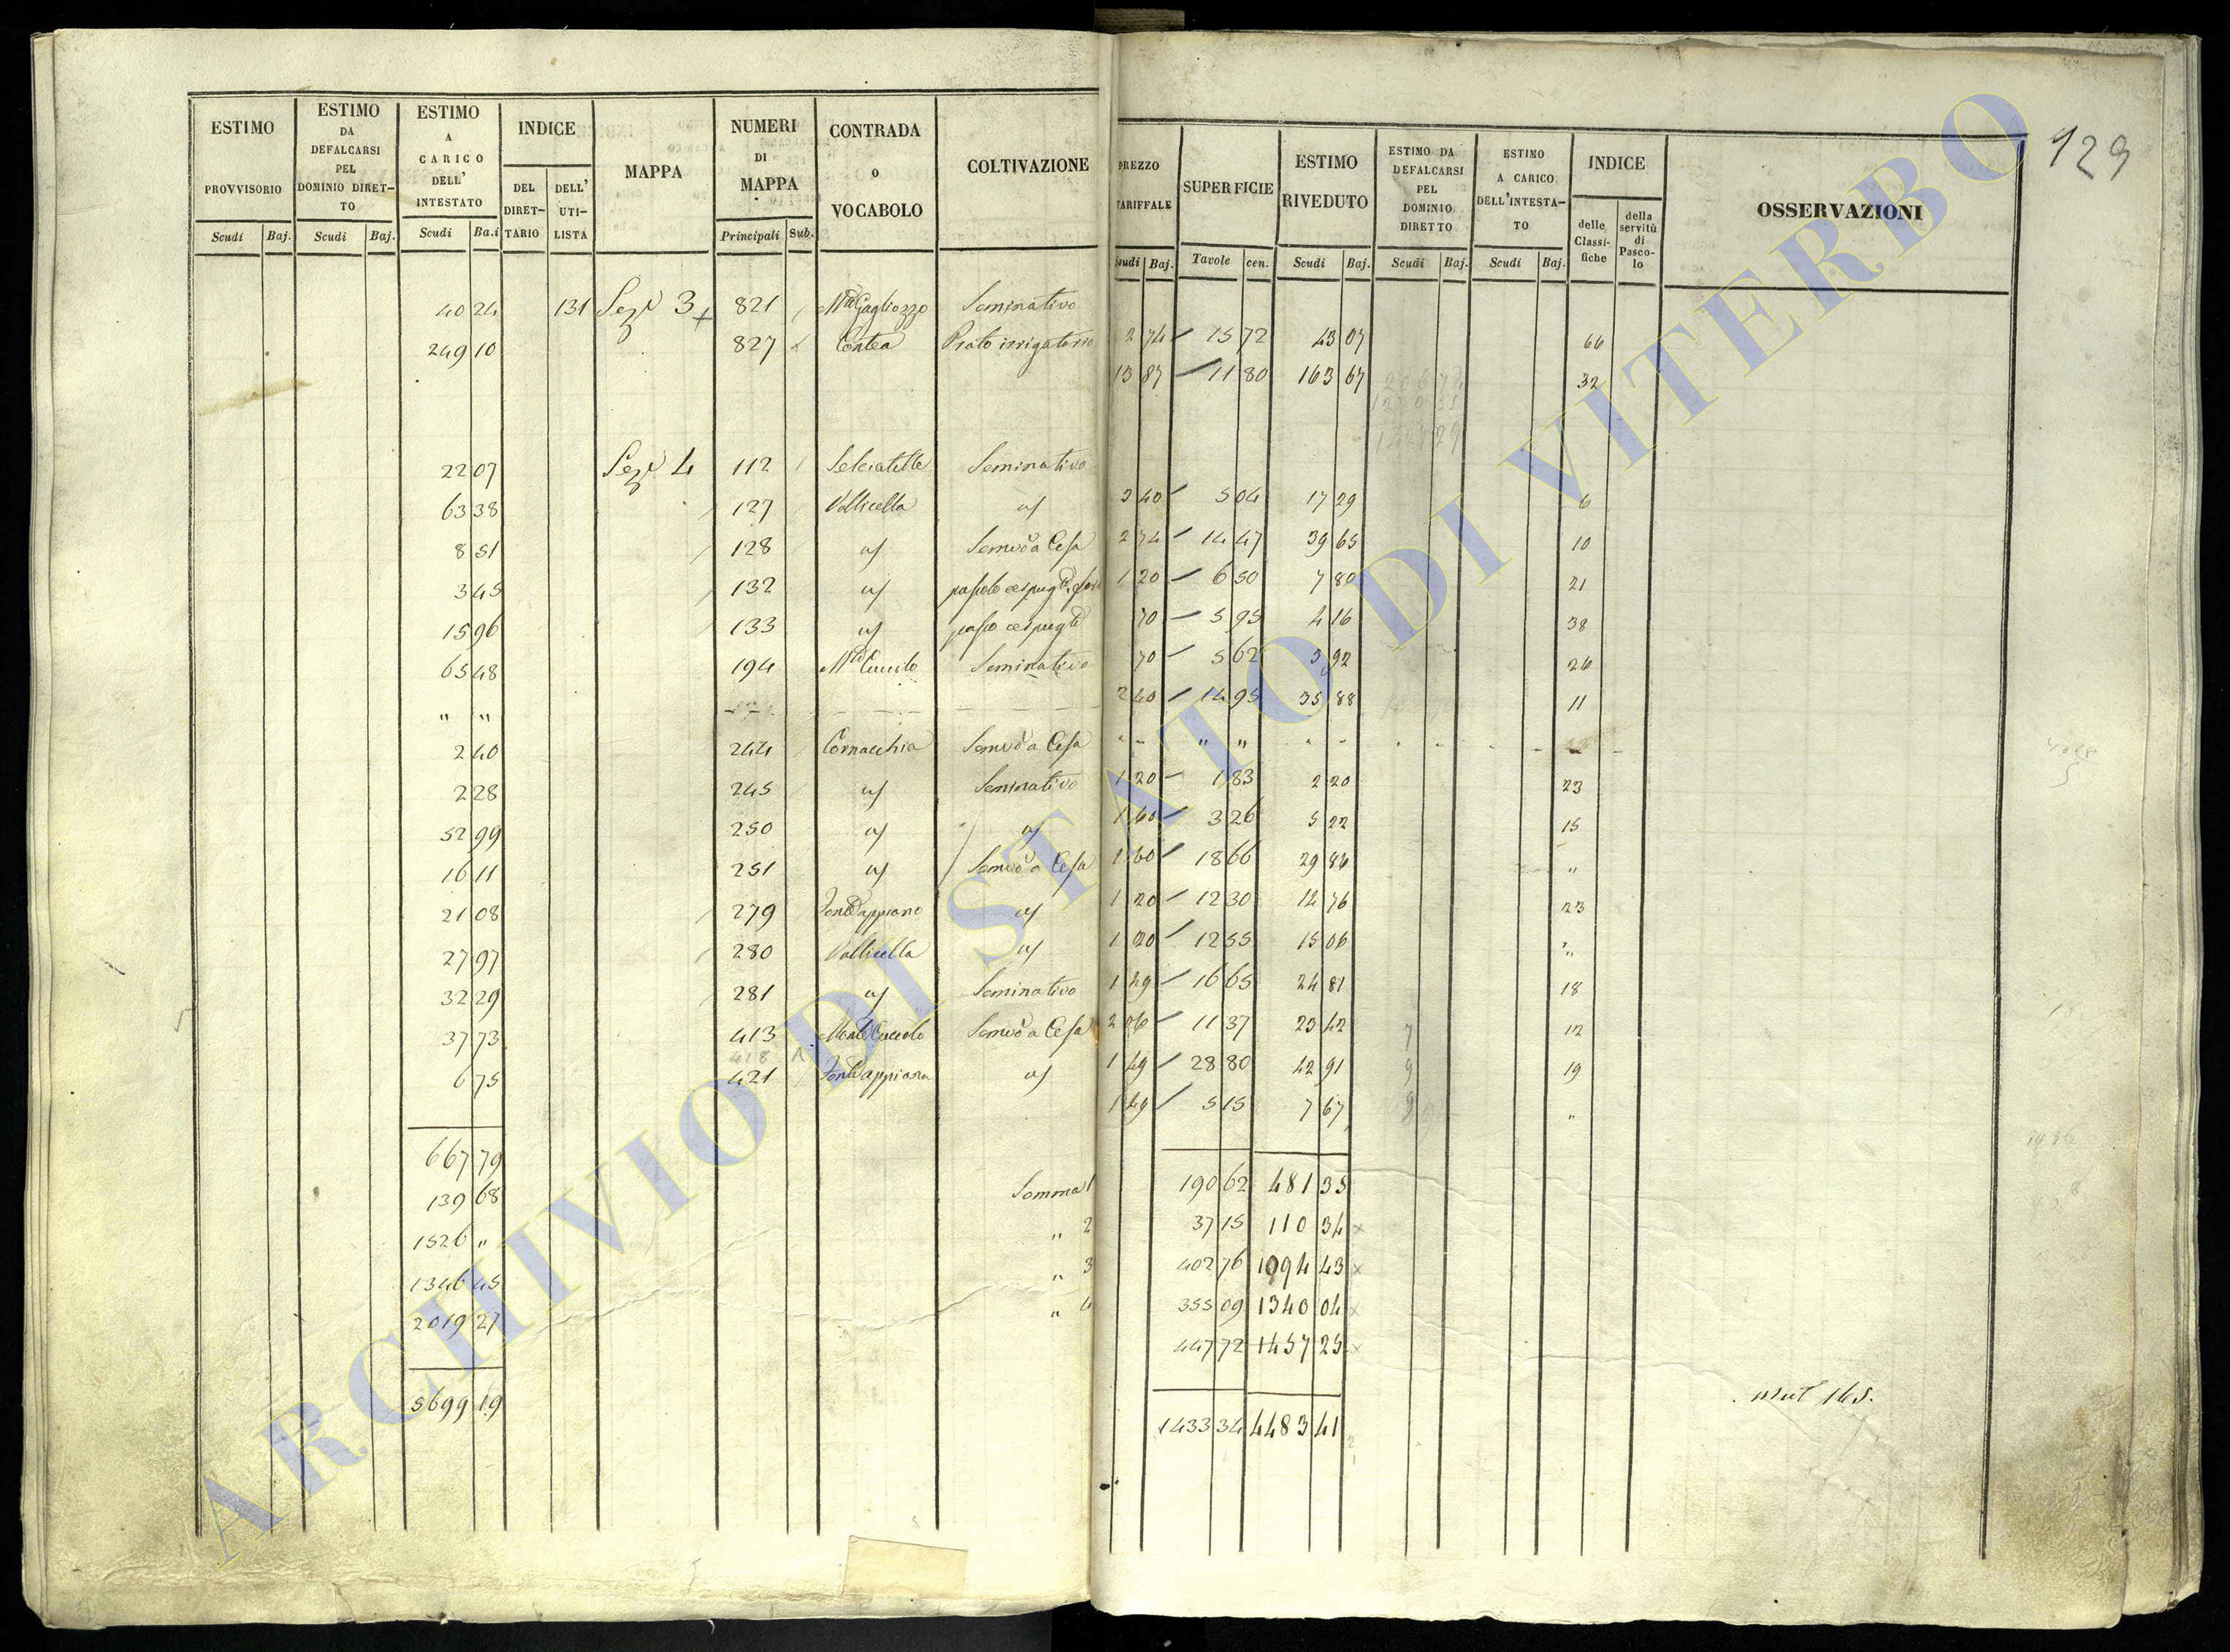 129
ESTIMO PROVVISORIO Scudi Baj.
ESTIMO DA DEFALCARSI PEL DOMINIO DIRET- TO Scudi Baj.
ESTIMO A CARICO DELL' INTESTATO Scudi Ba.i
INDICE DEL DIRET- TARIO DELL' UTI- LISTA
MAPPA
NUMERI DI MAPPA Principali Sub.
CONTRADA o VOCABOLO
COLTIVAZIONE
PREZZO TARIFFALE Scudi Baj.
SUPERFICIE Tavole cen.
ESTIMO RIVEDUTO Scudi Baj.
ESTIMO DA DEFALCARSI PEL DOMINIO DIRETTO Scudi Baj.
ESTIMO A CARICO DELL'INTESTA- TO Scudi Baj.
INDICE delle Classi- fiche della servitù di Pasco- lo
OSSERVAZIONI
40 24 131 Seze 3 821 Mte Gagliozzo Seminativo 2 74 15 72 43 07 66
249 10 827 Contea Prato irrigatorio 13 87 11 80 163 67 32
22 07 Seze 4 112 Selciatelle Seminativo 3 40 5 04 17 29 6
63 38 127 Vallicella 2 74 14 47 39 65 10
8 51 128 Semvo a Cesa 1 20 6 50 7 80 21
3 45 132 70 5 95 4 16 38
15 96 133 70 5 62 3 92 26
65 48 194 Mte Cuculo Seminativo 2 40 14 95 35 88 11
" " " "
2 40 244 Cornacchia Semvo a Cesa 1 20 1 83 2 20 23
2 28 245 Seminativo 1 60 3 26 5 22 15
52 99 250 1 60 18 66 29 86 "
16 11 251 Semvo a Cesa 1 20 12 30 14 76 23
21 08 279 1 20 12 55 15 06 "
27 97 280 Vallicella 1 49 16 65 24 81 18
32 29 281 Seminativo 2 06 11 37 23 42 12
37 73 413 Monte Cuculo Semvo a Cesa 1 49 28 80 42 91 19
418
6 75 421 1 49 5 15 7 67 "
667 79 Somma 1 190 62 481 35
139 68 " 2 37 15 110 34
1526 " " 3 402 76 1094 43
1346 45 " 4 355 09 1340 04
2019 27 447 72 1457 25
5699 19 1433 34 4483 41
mut 165.
ARCHIVIO DI STATO DI VITERBO